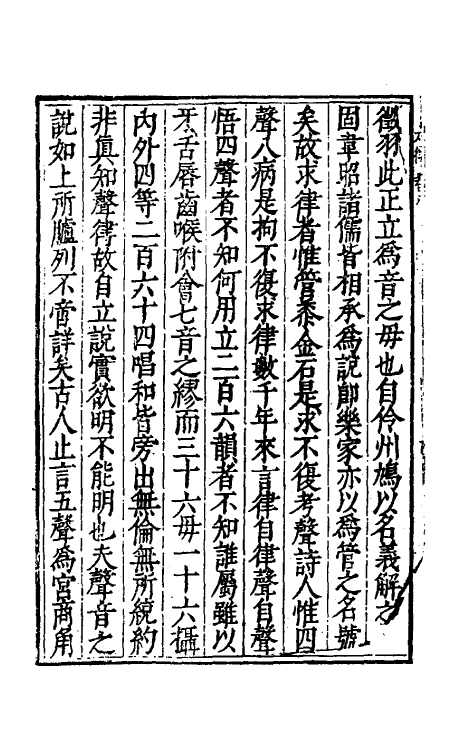 徵羽此正立爲音之母也自伶州鳩以名義解之
固韋昭諸儒皆相承爲說即樂家亦以爲管之名號
矣故求律者惟管黍金石是求不復考聲詩人惟四
聲八病是拘不復求律數千年來言律自律聲自聲
悟四聲者不知何用立二百六韻者不知誰屬雖以
牙舌唇齒喉附會七音之繆而三十六母一十六攝
內外四等二百六十四唱和皆旁出無倫無所統約
非眞知聲律故自立說實欲明不能明也夫聲音之
說如上所臚列不啻詳矣古人止言五聲爲宮商角